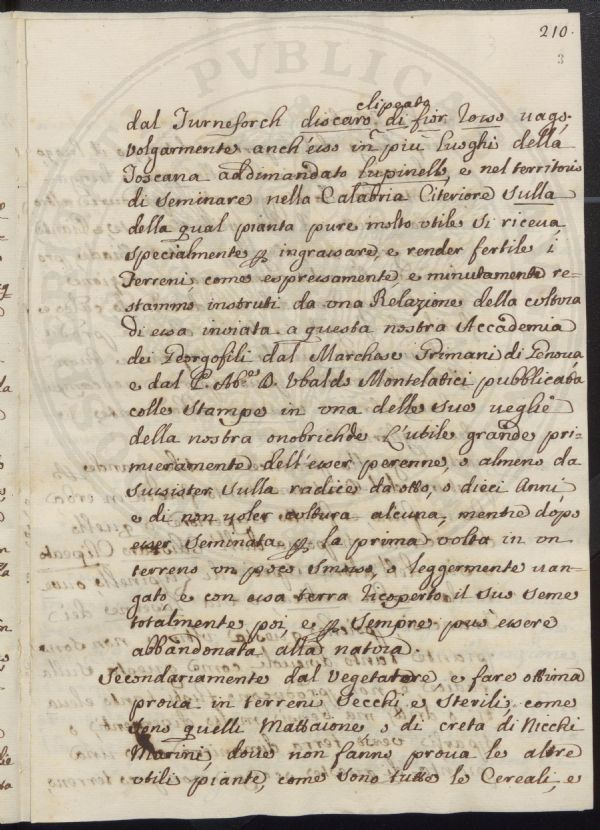 210.
3
clipeato
dal Turneforch discaro di fior rosso vago.
Volgarmente anch'esso in più luoghi della
Toscana addimandato lupinello, e nel territorio
di seminare nella Calabria Citeriore sulla
della qual pianta pure molto utile si riceva
specialmente p ingrassare, e render fertile i
Terreni come espressamente e minutamente re=
stammo instruti da una Relazione della cultura
di essa inviata a questa nostra Accademia
dei Georgofili dal Marchese Grimani di Genova
e dal P. Ab.e D. Ubaldo Montelatici pubblicata
colle stampe in una delle sue veglie
della nostra onobrichide. L'utile grande pri=
mieramente dell'esser perenne, o almeno da
sussister sulla radice da otto, o dieci Anni
e di non voler cultura alcuna, mentre dopo
esser seminata p la prima volta in un
terreno un poco smosso, o leggermente van=
gato e con essa terra ricoperto il suo seme
totalmente poi, e p sempre può essere
abbandonata alla natura.
Secondariamente dal vegetatore e fare ottima
prova in terreni secchi e sterili come
sono quelli Mattaione, o di creta di Nicchi
Marini, dove non fanno prova le altre
utili piante, come sono tutte le Cereali, e